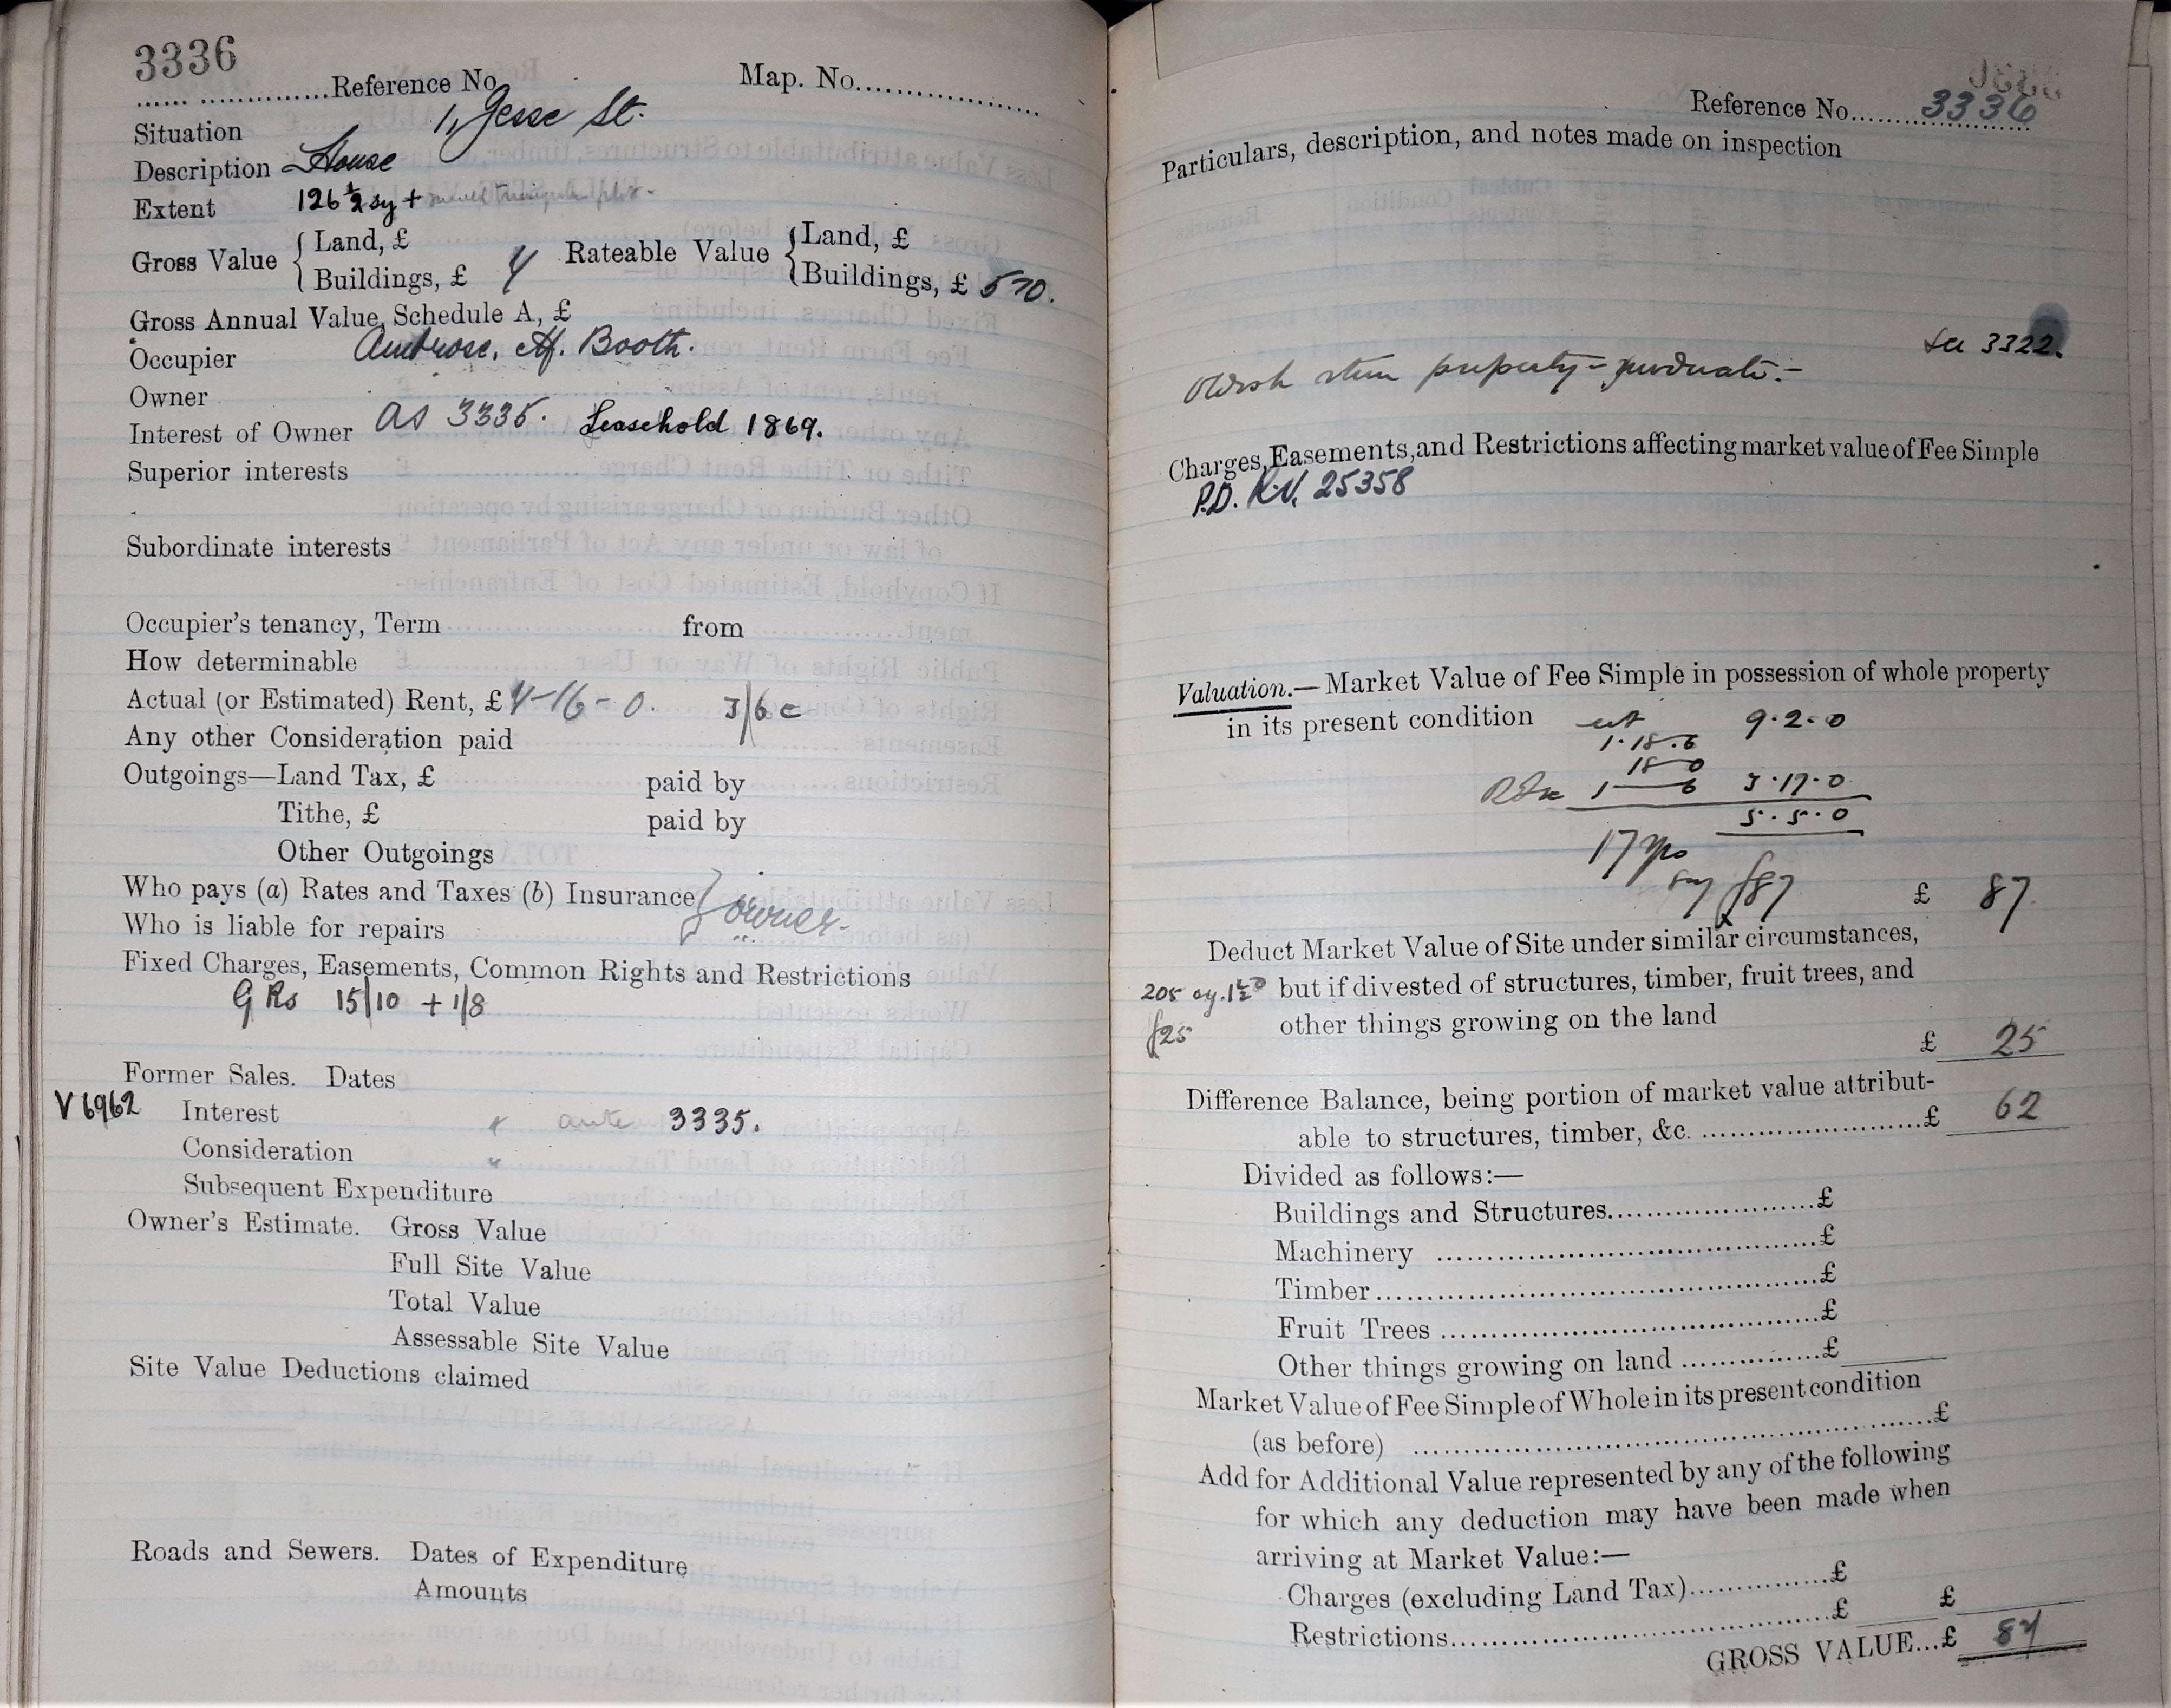 3336
Reference No. Map. No.
Situation 1, Jesse St.
Description House
Extent 126½ sy +
Gross Value { Land, £ Rateable Value { Land, £
Buildings, £ Buildings, £
Gross Annual Value, Schedule A, £
Occupier Ambrose, H. Booth.
Owner
Interest of Owner as 3335. Leasehold 1869.
Superior interests
Subordinate interests
Occupier's tenancy, Term from
How determinable
Actual (or Estimated) Rent, £ -16-0. 3/6
Any other Consideration paid
Outgoings—Land Tax, £ paid by
Tithe, £ paid by
Other Outgoings
Who pays (a) Rates and Taxes (b) Insurance } owner.
Who is liable for repairs
Fixed Charges, Easements, Common Rights and Restrictions
G Rs 15/10 + 1/8
Former Sales. Dates
V 6962 Interest " ante 3335.
Consideration "
Subsequent Expenditure
Owner's Estimate. Gross Value
Full Site Value
Total Value
Assessable Site Value
Site Value Deductions claimed
Roads and Sewers. Dates of Expenditure
Amounts
Reference No. 3336
Particulars, description, and notes made on inspection
See 3322.
property
Charges, Easements, and Restrictions affecting market value of Fee Simple
P.D. R.V. 25358
Valuation.— Market Value of Fee Simple in possession of whole property
in its present condition 9.2.0
1.18.6
18 0
1 6 3.17.0
5.5.0
17 yrs
say £87
£ 87
Deduct Market Value of Site under similar circumstances,
205 sy. but if divested of structures, timber, fruit trees, and
£25 other things growing on the land
£ 25
Difference Balance, being portion of market value attribut-
able to structures, timber, &c. £ 62
Divided as follows:—
Buildings and Structures £
Machinery £
Timber £
Fruit Trees £
Other things growing on land £
Market Value of Fee Simple of Whole in its present condition
(as before) £
Add for Additional Value represented by any of the following
for which any deduction may have been made when
arriving at Market Value:—
Charges (excluding Land Tax) £
Restrictions £ £
GROSS VALUE...£ 87